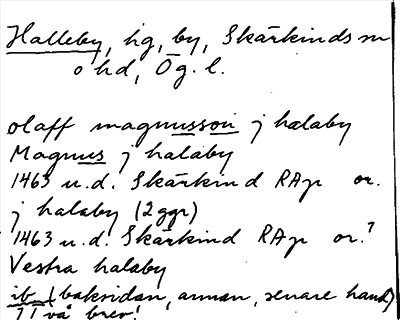 Halleby, hg, by, Skärkinds sn
o hd, Ög. l.
olaff magnusson j halaby
Magnus j halaby
1463 u.d. Skärkind RAp or.
j halaby (2 ggr)
1463 u.d. Skärkind RAp or.?
Vestra halaby
ib. (baksidan, annan, senare hand)
I två brev!